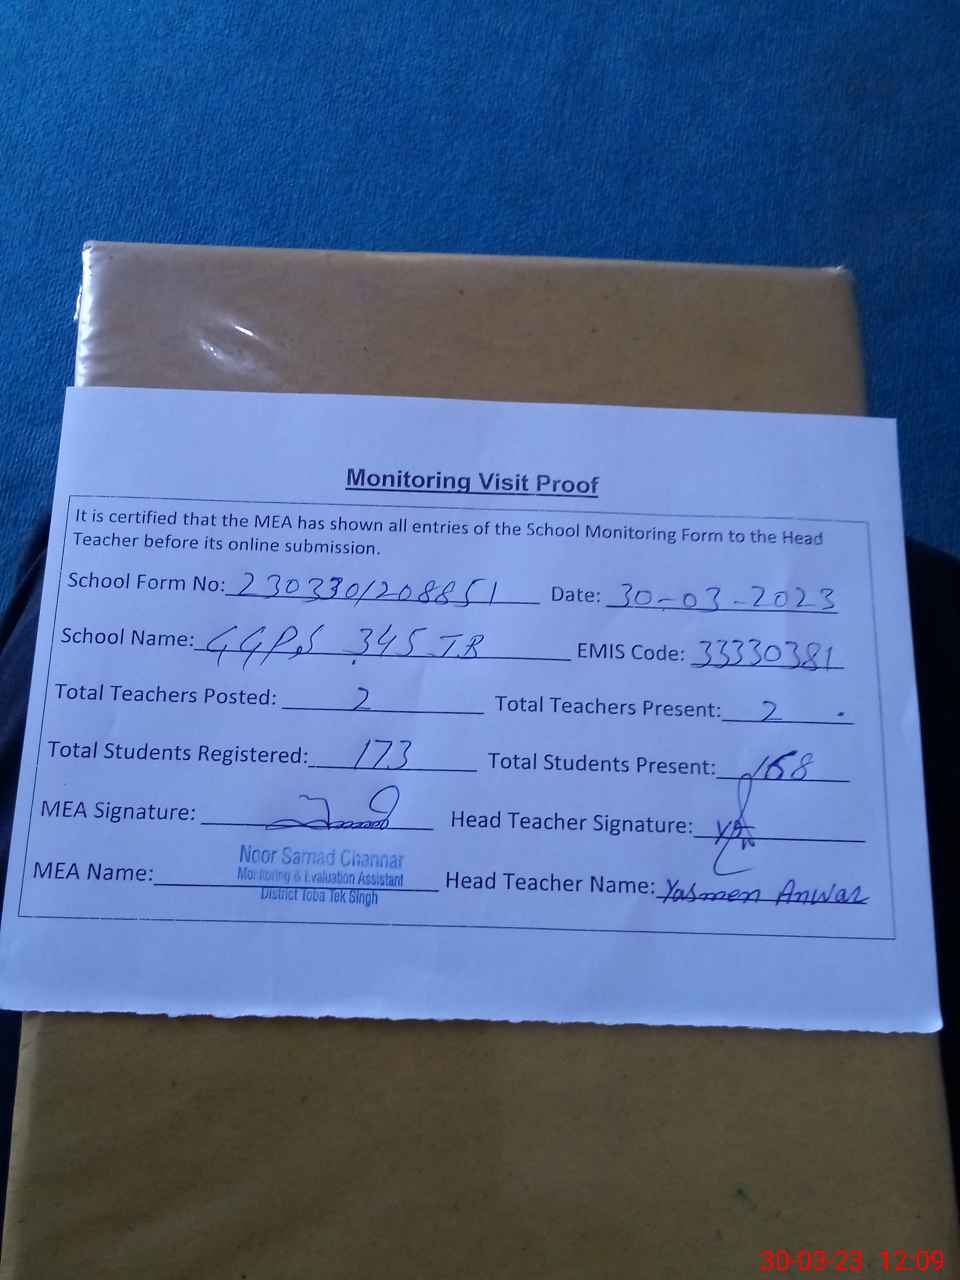 Monitoring Visit Proof
It is certified that the MEA has shown all entries of the School Monitoring Form to the Head
Teacher before its online submission.
School Form No: 2303301208851 Date: 30-03-2023
School Name: GGPS 345-JB EMIS Code: 33330381
Total Teachers Posted: 2 Total Teachers Present: 2
Total Students Registered: 173 Total Students Present: 168
MEA Signature: Head Teacher Signature:
MEA Name: Noor Samad Channar Head Teacher Name: Yasmen Anwar
Monitoring & Evaluation Assistant
District Toba Tek Singh
30-03-23 12:09